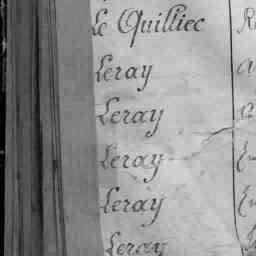 Le Quilliec
Leray
Leray
Leray
Leray
Leray